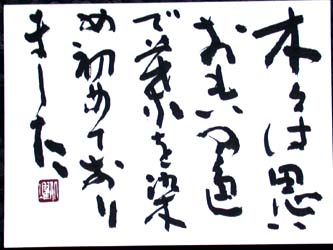 木々は思い
おもいの通
で葉を染
め初めており
ました